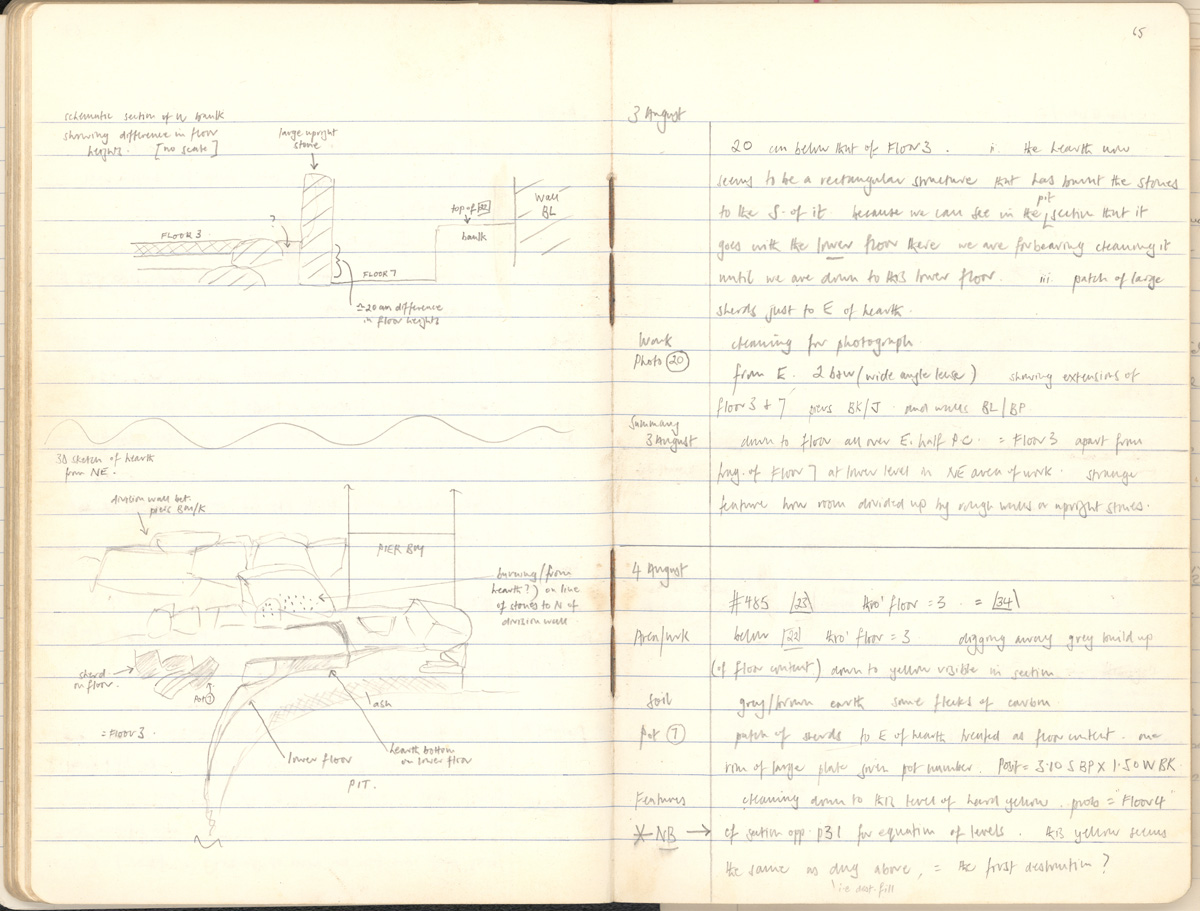 schematic section of W bank
showing difference in floor
heights. [no scale]
large upright
stone
?
FLOOR 3
top of 22
bank
Wall
BL
FLOOR 7
≃20 cm difference
in floor heights
3D sketch of hearth
from NE.
division wall bet.
piers BM/K
PIER BM
burning (from
hearth?) on line
of stones to N of
division wall
sherd
on floor.
Pot 1
= FLOOR 3.
ash
lower floor
hearth bottom
on lower floor
PIT.
65
3 August
20 cm below that of Floor 3. ii. the hearth now
seems to be a rectangular structure that has burnt the stones
to the S. of it because we can see in the pit section that it
goes with the lower floor there we are forbearing cleaning it
until we are down to this lower floor. iii. patch of large
sherds just to E of hearth.
Work cleaning for photograph.
Photo 20
from E. 2 b&w (wide angle lense) showing extensions of
floor 3 + 7 piers BK/J and walls BL/BP
Summary
3 August down to floor all over E. half PC. = Floor 3 apart from
frag. of Floor 7 at lower level in NE area of work. strange
feature how room divided up by rough walls or upright stones.
4 August
#485 /23\ thro' floor = 3 . = /34\
Area/wk below /22\ thro' floor = 3 digging away grey build up
(of floor content) down to yellow visible in section
Soil grey/brown earth some flecks of carbon
Pot 1 patch of sherds to E of hearth treated as floor content. one
rim of large plate given pot number. Post= 3.10 S BP X 1.50 W BK.
Features cleaning down to this level of hard yellow. prob = "Floor 4"
* NB → cf section opp. p31 for equation of levels. this yellow seems
the same as dug above, = the first destruction?
i.e. dest. fill